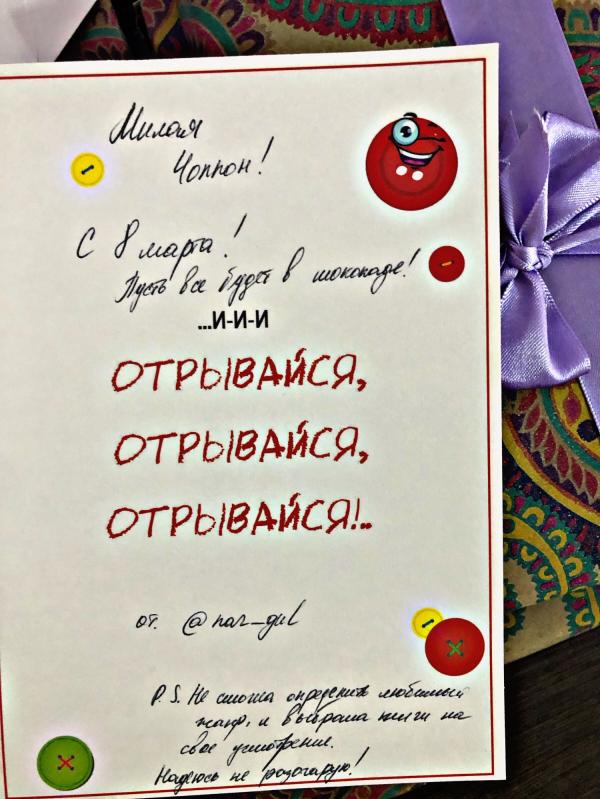 Милая
Чоппон!
С 8 марта!
Пусть все будет в шоколаде!
...И-И-И
ОТРЫВАЙСЯ,
ОТРЫВАЙСЯ,
ОТРЫВАЙСЯ!..
от @nar_gul
P.S. Не смогла определить любимый
жанр, и выбрала книги на
свое усмотрение.
Надеюсь не разочарую!